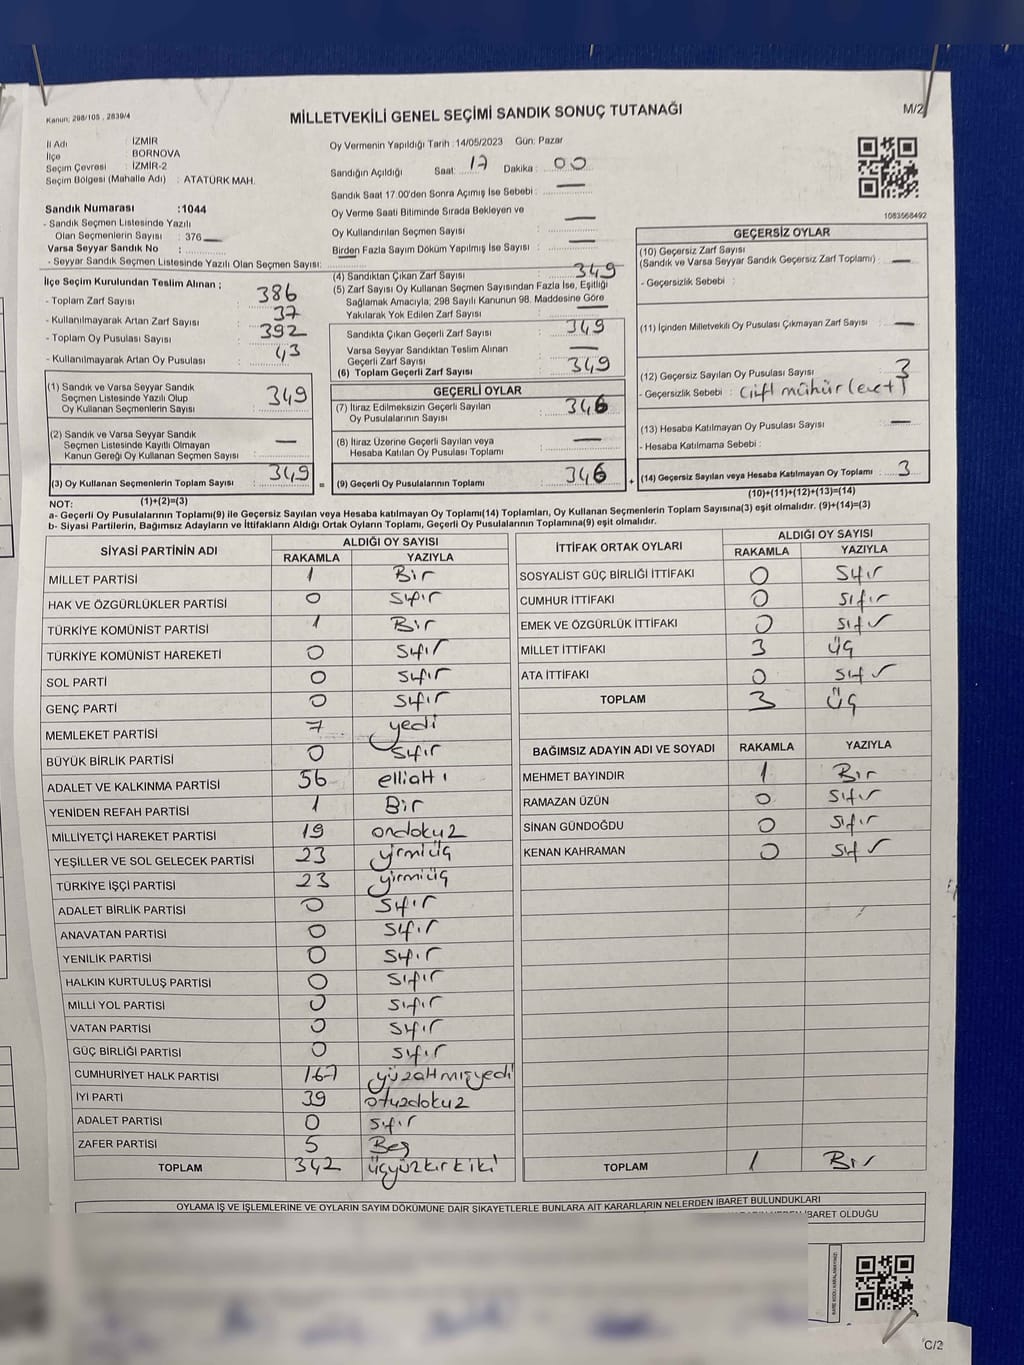 Kanun; 298/105 , 2839/4
MİLLETVEKİLİ GENEL SEÇİMİ SANDIK SONUÇ TUTANAĞI
M/2
İl Adı : İZMİR
İlçe : BORNOVA
Seçim Çevresi : İZMİR-2
Seçim Bölgesi (Mahalle Adı) : ATATÜRK MAH.
Sandık Numarası :1044
- Sandık Seçmen Listesinde Yazılı
Olan Seçmenlerin Sayısı : 376
Varsa Seyyar Sandık No :
- Seyyar Sandık Seçmen Listesinde Yazılı Olan Seçmen Sayısı:
Oy Vermenin Yapıldığı Tarih :14/05/2023 Gün: Pazar
Sandığın Açıldığı Saat: 17 Dakika : 00
Sandık Saat 17.00'den Sonra Açımış İse Sebebi : —
Oy Verme Saati Bitiminde Sırada Bekleyen ve
Oy Kullandırılan Seçmen Sayısı : —
Birden Fazla Sayım Döküm Yapılmış İse Sayısı : —
1083568492
İlçe Seçim Kurulundan Teslim Alınan ;
- Toplam Zarf Sayısı : 386
- Kullanılmayarak Artan Zarf Sayısı : 37
- Toplam Oy Pusulası Sayısı : 392
- Kullanılmayarak Artan Oy Pusulası : 43
(1) Sandık ve Varsa Seyyar Sandık
Seçmen Listesinde Yazılı Olup
Oy Kullanan Seçmenlerin Sayısı : 349
(2) Sandık ve Varsa Seyyar Sandık
Seçmen Listesinde Kayıtlı Olmayan
Kanun Gereği Oy Kullanan Seçmen Sayısı : —
(3) Oy Kullanan Seçmenlerin Toplam Sayısı : 349
(4) Sandıktan Çıkan Zarf Sayısı : 349
(5) Zarf Sayısı Oy Kullanan Seçmen Sayısından Fazla İse, Eşitliği
Sağlamak Amacıyla; 298 Sayılı Kanunun 98. Maddesine Göre
Yakılarak Yok Edilen Zarf Sayısı : —
Sandıkta Çıkan Geçerli Zarf Sayısı : 349
Varsa Seyyar Sandıktan Teslim Alınan
Geçerli Zarf Sayısı : —
(6) Toplam Geçerli Zarf Sayısı : 349
GEÇERLİ OYLAR
(7) İtiraz Edilmeksizin Geçerli Sayılan
Oy Pusulalarının Sayısı : 346
(8) İtiraz Üzerine Geçerli Sayılan veya
Hesaba Katılan Oy Pusulası Toplamı : —
= (9) Geçerli Oy Pusulalarının Toplamı : 346
GEÇERSİZ OYLAR
(10) Geçersiz Zarf Sayısı
(Sandık ve Varsa Seyyar Sandık Geçersiz Zarf Toplamı) : —
- Geçersizlik Sebebi :
(11) İçinden Milletvekili Oy Pusulası Çıkmayan Zarf Sayısı : —
(12) Geçersiz Sayılan Oy Pusulası Sayısı : 3
- Geçersizlik Sebebi : çift mühür (evet)
(13) Hesaba Katılmayan Oy Pusulası Sayısı : —
- Hesaba Katılmama Sebebi :
+ (14) Geçersiz Sayılan veya Hesaba Katılmayan Oy Toplamı : 3
NOT: (1)+(2)=(3) (10)+(11)+(12)+(13)=(14)
a- Geçerli Oy Pusulasının Toplamı(9) ile Geçersiz Sayılan veya Hesaba Katılmayan Oy Toplamı(14) Toplamları, Oy Kullanan Seçmenlerin Toplam Sayısına(3) eşit olmalıdır. (9)+(14)=(3)
b- Siyasi Partilerin, Bağımsız Adayların ve İttifakların Aldığı Ortak Oyların Toplamı, Geçerli Oy Pusulalarının Toplamına(9) eşit olmalıdır.
SİYASİ PARTİNİN ADI ALDIĞI OY SAYISI
RAKAMLA YAZIYLA
MİLLET PARTİSİ 1 Bir
HAK VE ÖZGÜRLÜKLER PARTİSİ 0 Sıfır
TÜRKİYE KOMÜNİST PARTİSİ 1 Bir
TÜRKİYE KOMÜNİST HAREKETİ 0 Sıfır
SOL PARTİ 0 Sıfır
GENÇ PARTİ 0 Sıfır
MEMLEKET PARTİSİ 7 yedi
BÜYÜK BİRLİK PARTİSİ 0 Sıfır
ADALET VE KALKINMA PARTİSİ 56 elliatı
YENİDEN REFAH PARTİSİ 1 Bir
MİLLİYETÇİ HAREKET PARTİSİ 19 ondokuz
YEŞİLLER VE SOL GELECEK PARTİSİ 23 yirmiüç
TÜRKİYE İŞÇİ PARTİSİ 23 yirmiüç
ADALET BİRLİK PARTİSİ 0 Sıfır
ANAVATAN PARTİSİ 0 Sıfır
YENİLİK PARTİSİ 0 Sıfır
HALKIN KURTULUŞ PARTİSİ 0 Sıfır
MİLLİ YOL PARTİSİ 0 Sıfır
VATAN PARTİSİ 0 Sıfır
GÜÇ BİRLİĞİ PARTİSİ 0 Sıfır
CUMHURİYET HALK PARTİSİ 167 yüzatmışyedi
İYİ PARTİ 39 otuzdokuz
ADALET PARTİSİ 0 Sıfır
ZAFER PARTİSİ 5 Beş
TOPLAM 342 üçyüzkırkiki
İTTİFAK ORTAK OYLARI ALDIĞI OY SAYISI
RAKAMLA YAZIYLA
SOSYALİST GÜÇ BİRLİĞİ İTTİFAKI 0 Sıfır
CUMHUR İTTİFAKI 0 Sıfır
EMEK VE ÖZGÜRLÜK İTTİFAKI 0 Sıfır
MİLLET İTTİFAKI 3 Üç
ATA İTTİFAKI 0 Sıfır
TOPLAM 3 Üç
BAĞIMSIZ ADAYIN ADI VE SOYADI RAKAMLA YAZIYLA
MEHMET BAYINDIR 1 Bir
RAMAZAN ÜZÜN 0 Sıfır
SİNAN GÜNDOĞDU 0 Sıfır
KENAN KAHRAMAN 0 Sıfır
TOPLAM 1 Bir
OYLAMA İŞ VE İŞLEMLERİNE VE OYLARIN SAYIM DÖKÜMÜNE DAİR ŞİKAYETLERLE BUNLARA AİT KARARLARIN NELERDEN İBARET BULUNDUKLARI
İBARET OLDUĞU
C/2